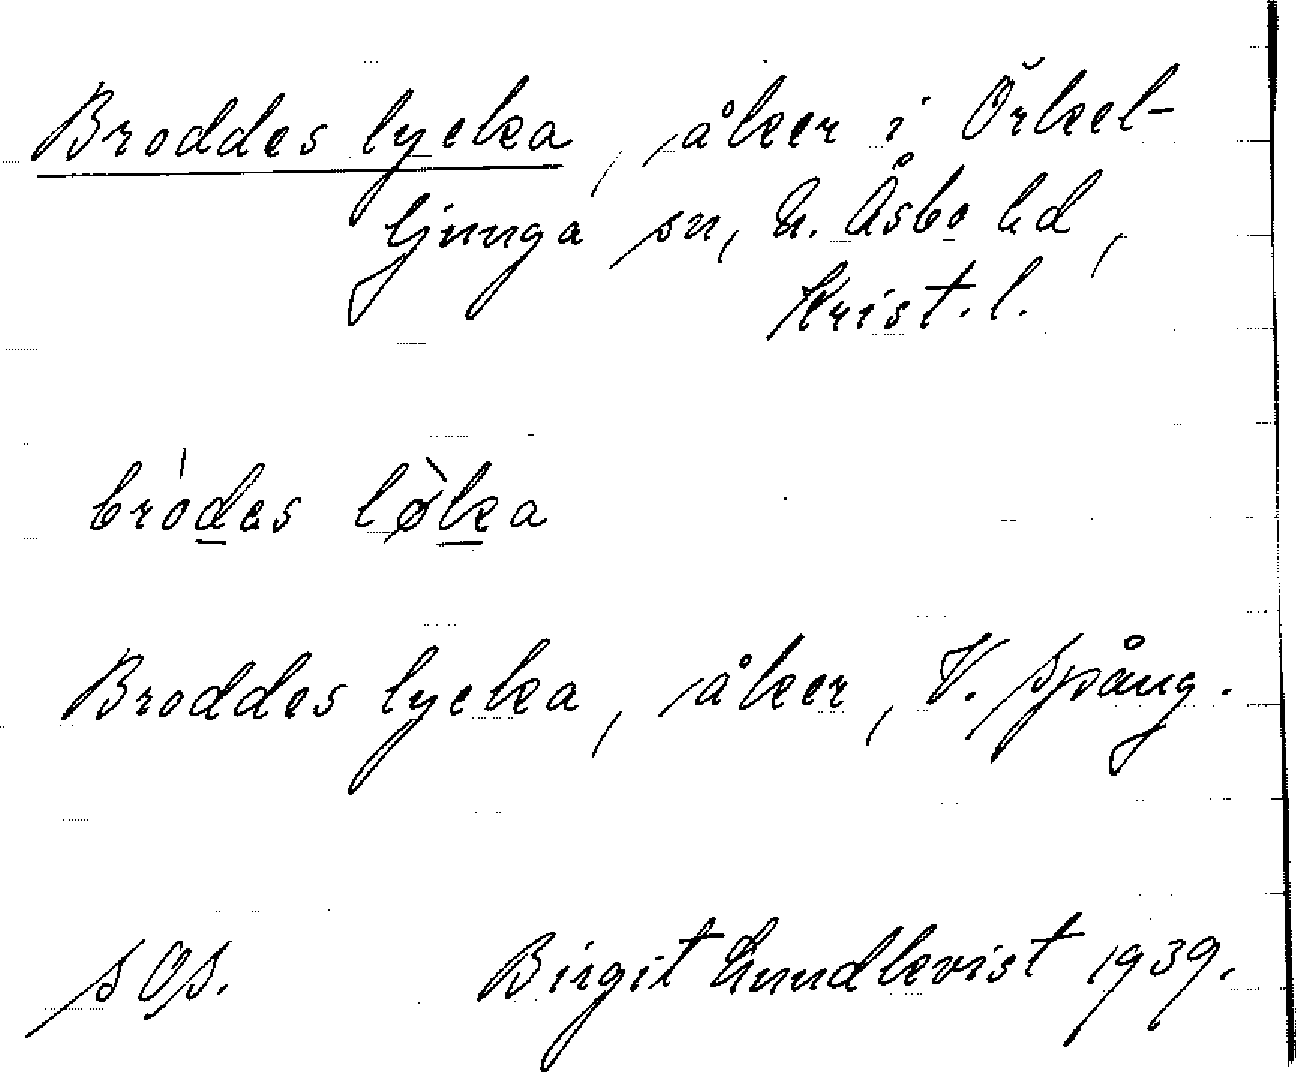 Broddes lycka, åker i Örkel-
ljunga sn, N. Åsbo hd,
Krist. l.
bródes lø̀ka
Broddes lycka, åker, V. Spång.
SOS. Birgit Lundkvist 1939.